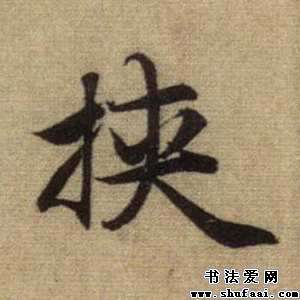 挟
书法爱网
www.shufaai.com